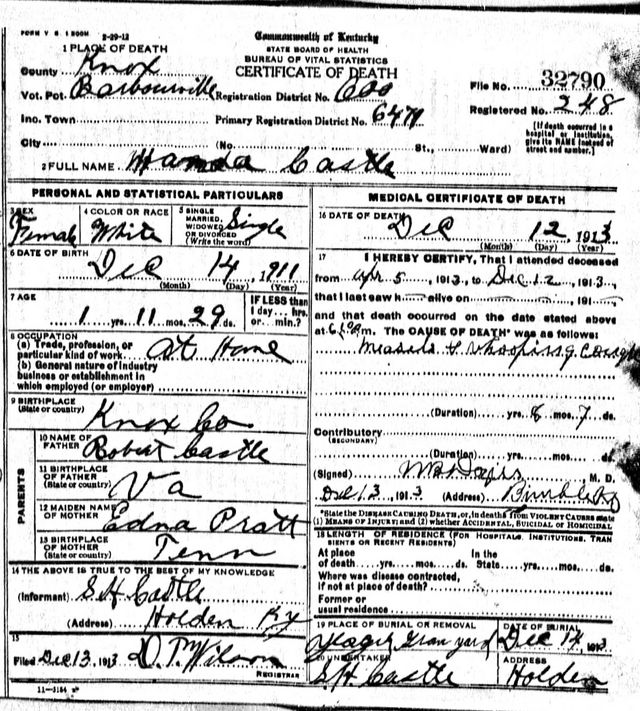 FORM V. S. 1 500M 2-29-12
Commonwealth of Kentucky
STATE BOARD OF HEALTH
BUREAU OF VITAL STATISTICS
CERTIFICATE OF DEATH
1 PLACE OF DEATH
County Knox
Vot. Pct Barbourville
Registration District No. 600
File No. 32790
Inc. Town
Primary Registration District No. 6471
Registered No. 248
City (No. St., Ward)
[If death occurred in a hospital or institution, give its NAME instead of street and number.]
2 FULL NAME Castle
PERSONAL AND STATISTICAL PARTICULARS
3 SEX Female
4 COLOR OR RACE White
5 SINGLE MARRIED, WIDOWED OR DIVORCED (Write the word) Single
6 DATE OF BIRTH
Dec 14, 1911
(Month) (Day) (Year)
7 AGE
1 yrs. 11 mos. 29 ds.
IF LESS than 1 day... hrs. or... min.?
8 OCCUPATION
(a) Trade, profession, or particular kind of work At Home
(b) General nature of industry business or establishment in which employed (or employer)
9 BIRTHPLACE (State or country) Knox Co
PARENTS
10 NAME OF FATHER Robert Castle
11 BIRTHPLACE OF FATHER (State or country) Va
12 MAIDEN NAME OF MOTHER Edna Pratt
13 BIRTHPLACE OF MOTHER (State or country) Tenn
14 THE ABOVE IS TRUE TO THE BEST OF MY KNOWLEDGE
(Informant) S H Castle
(Address) Holden Ky
15
Filed Dec 13, 1913 D. T. Wilson
REGISTRAR
11-3184
MEDICAL CERTIFICATE OF DEATH
16 DATE OF DEATH
Dec 12, 1913
(Month) (Day) (Year)
17 I HEREBY CERTIFY, That I attended deceased
from Apr 5, 1913, to Dec 12, 1913,
that I last saw h alive on , 191
and that death occurred on the date stated above
at 6 m. The CAUSE OF DEATH* was as follows:
Measels & Whooping Cough
(Duration) yrs. 8 mos. 7 ds.
Contributory
(SECONDARY)
(Duration) yrs. mos. ds.
(Signed) M. D.
Dec 13, 1913 (Address) Bimble Ky
*State the DISEASE CAUSING DEATH, or, in deaths from VIOLENT CAUSES state (1) MEANS OF INJURY; and (2) whether ACCIDENTAL, SUICIDAL OR HOMICIDAL
18 LENGTH OF RESIDENCE (FOR HOSPITALS, INSTITUTIONS, TRANSIENTS OR RECENT RESIDENTS)
At place of death yrs. mos. ds. In the State yrs. mos. ds.
Where was disease contracted, if not at place of death?
Former or usual residence
19 PLACE OF BURIAL OR REMOVAL
Grave yard
DATE OF BURIAL
Dec 14, 1913
20 UNDERTAKER
S. H. Castle
ADDRESS
Holden